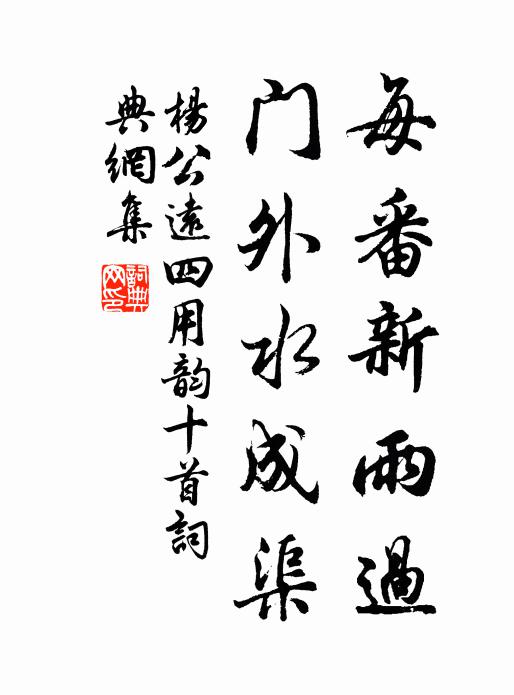 每番新雨過
门外水成渠
楊公遠四用韵十首詞
典網集
詞典
网印